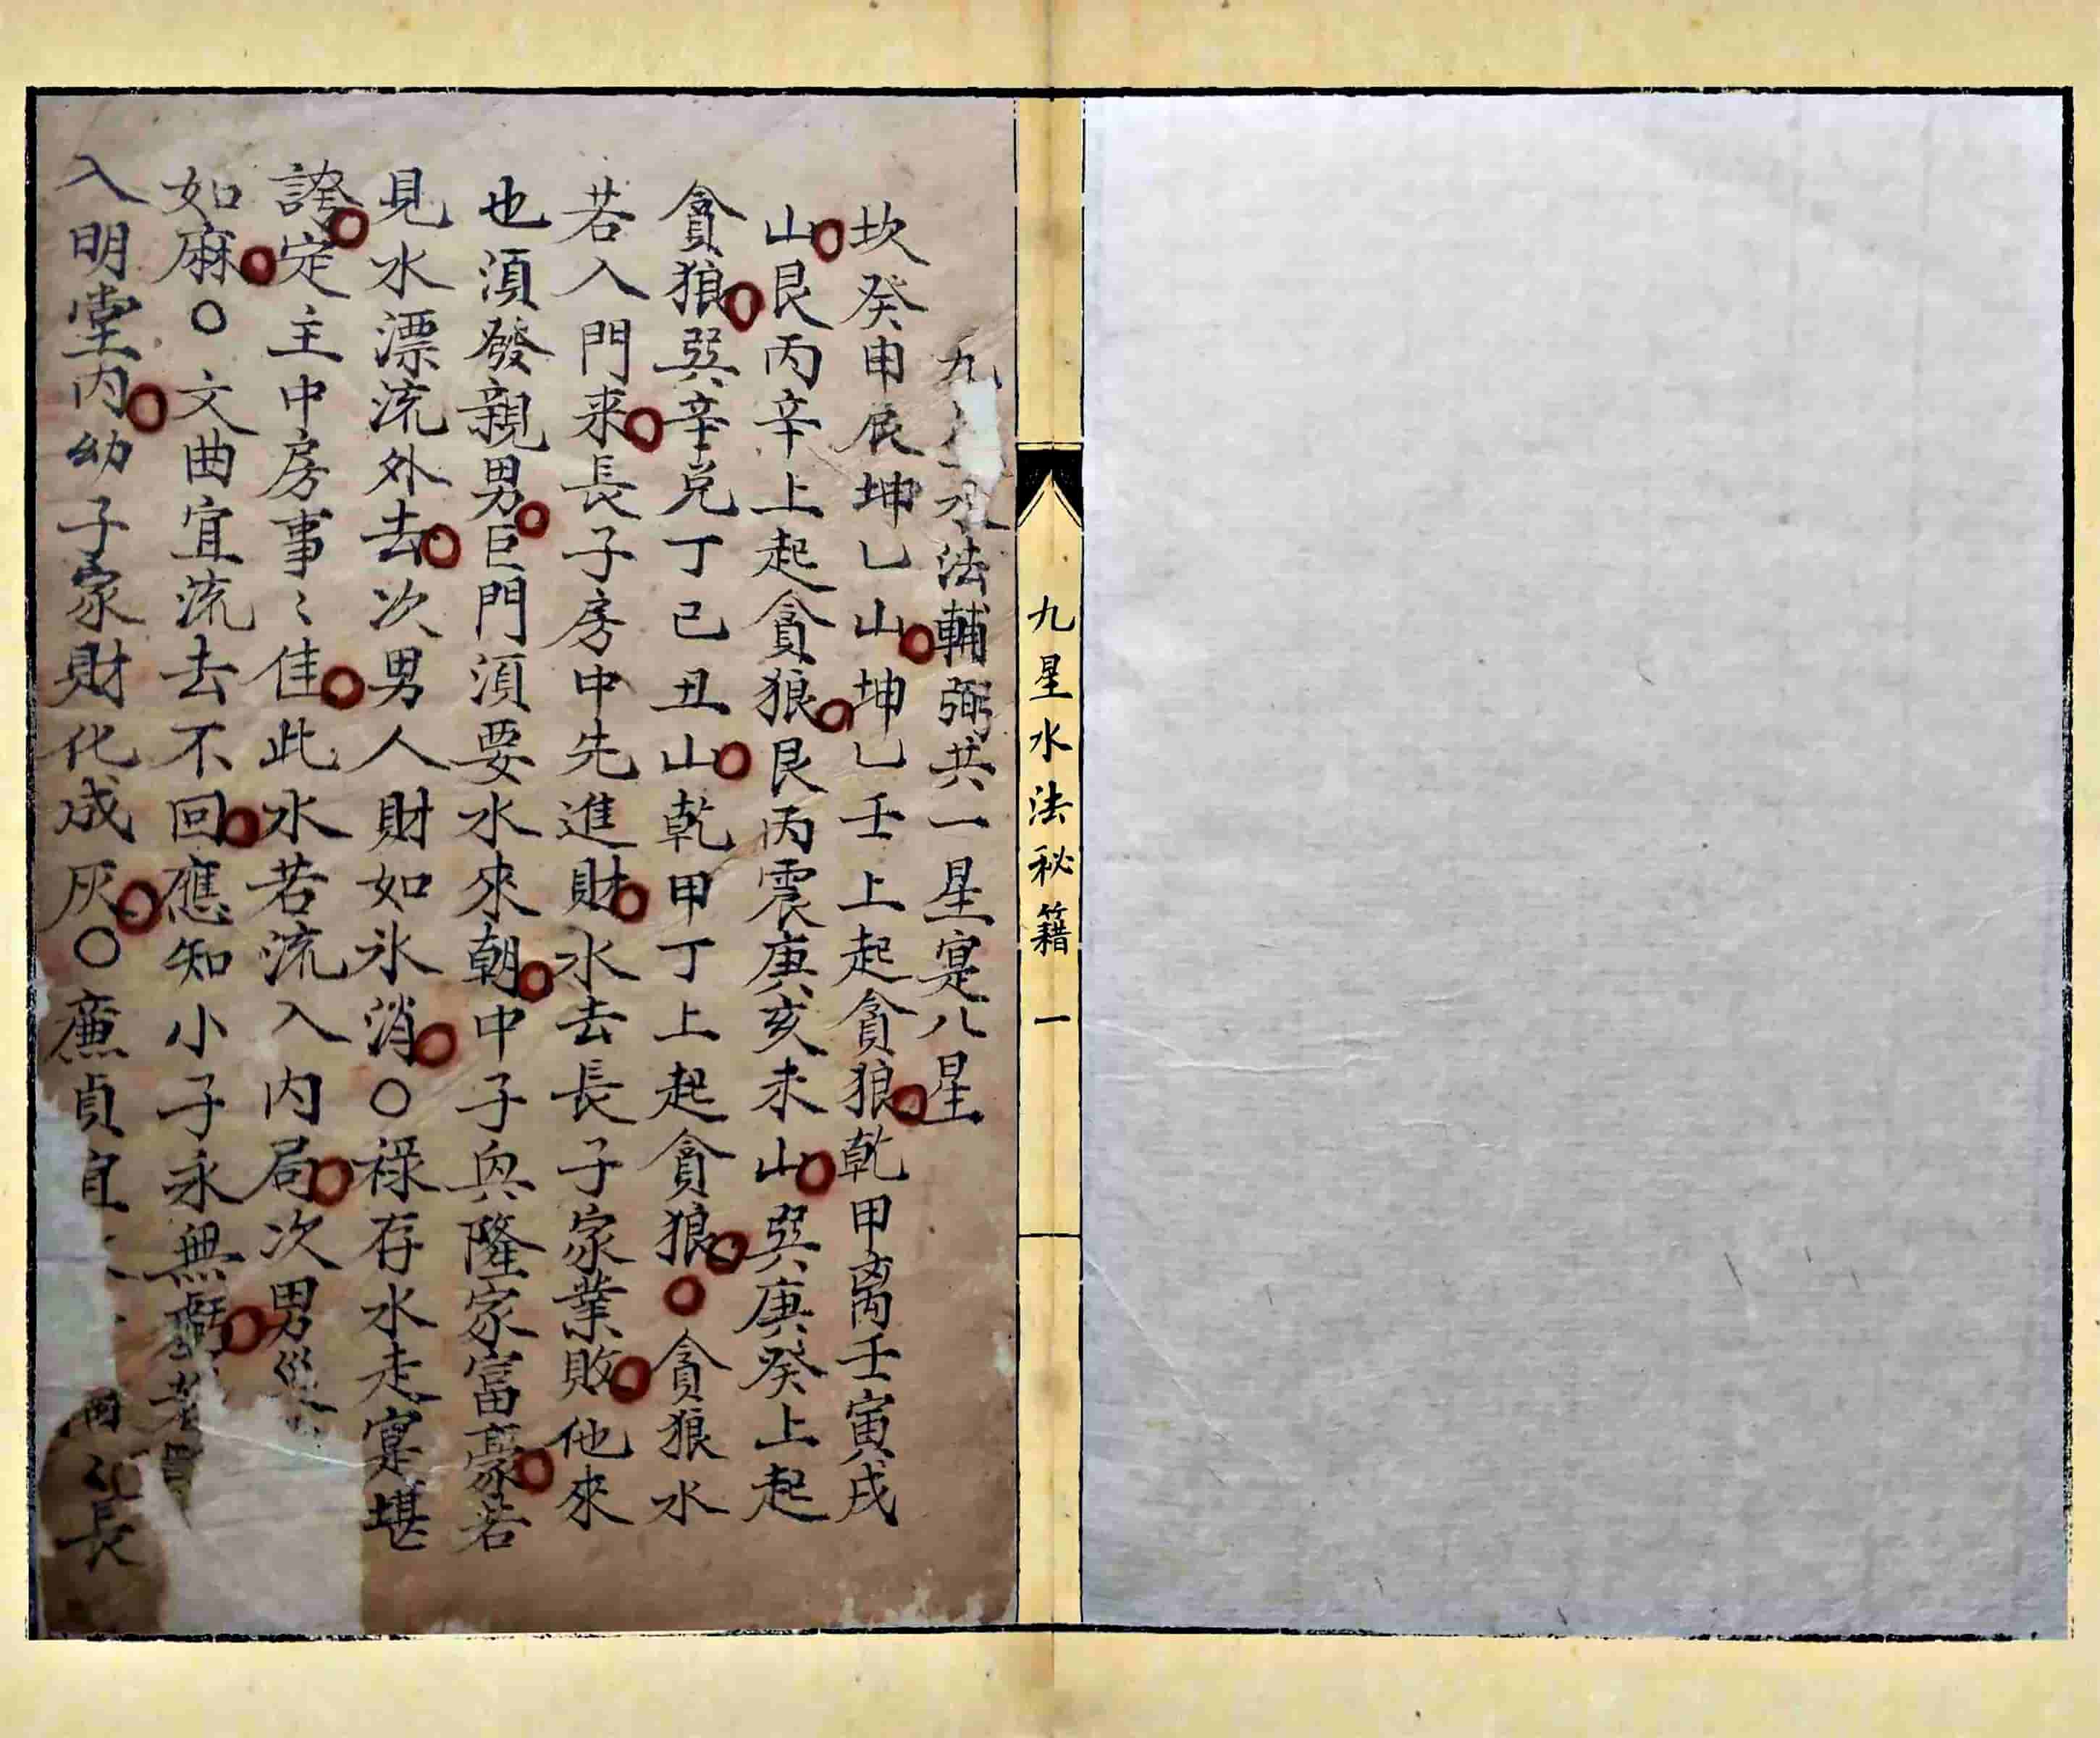 九星水法秘籍 一
九 水法輔弼共一星寔八星
坎癸申辰坤乙山坤乙壬上起貪狼乾甲离壬寅戌
山艮丙辛上起貪狼艮丙震庚亥未山巽庚癸上起
貪狼巽辛兌丁己丑山乾甲丁上起貪狼○貪狼水
若入門来長子房中先進財水去長子家業敗他來
也須發親男巨門須要水來朝中子興隆家富豪若
見水漂流外去次男人財如氷消○祿存水走寔堪
誇定主中房事〻佳此水若流入内局次男
如麻○文曲宜流去不回應知小子永無
入明堂内幼子家財化成灰○廉貞宜 長